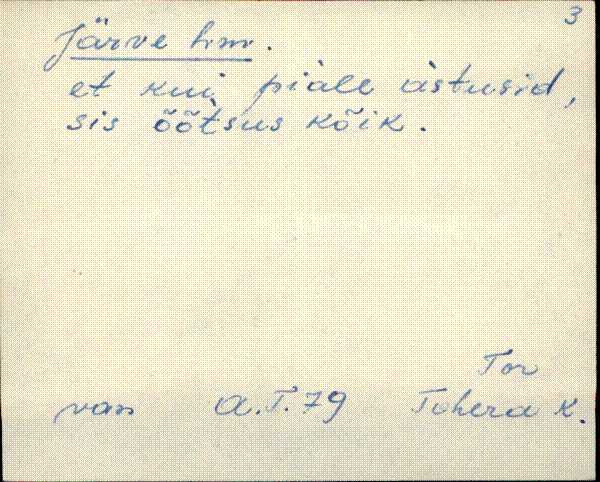 3
Järve hrn.
et kui piale astusid,
sis õõtsus kõik.
Tor
van A.T.79 Tohera K.